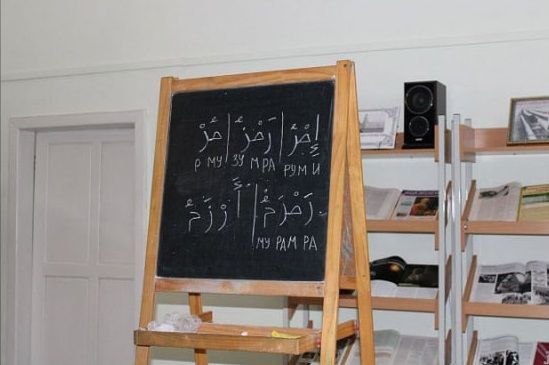 إِمْرُ | رَمْزُ | مُرْ
Р МУ ЗУ М РА РУМ И
رَمْرَمُ | أَرْزَمُ
МУ РАМ РА